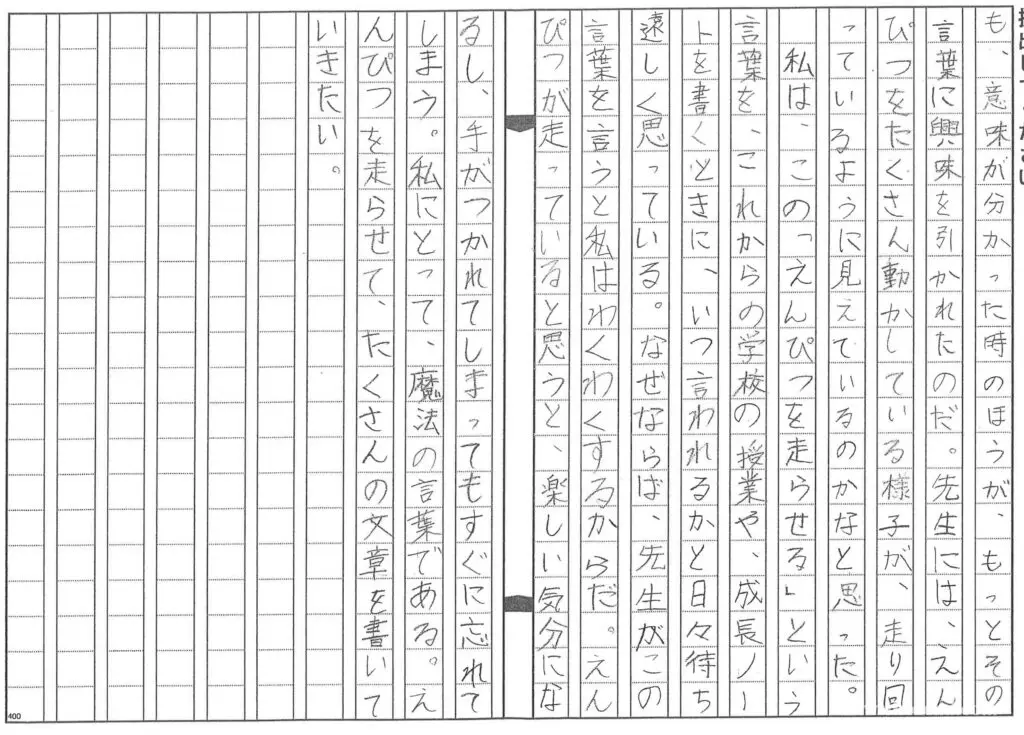 も、意味が分かった時のほうが、もっとその
言葉に興味を引かれたのだ。先生には、えん
ぴつをたくさん動かしている様子が、走り回
っているように見えているのかなと思った。
私は、この「えんぴつを走らせる」という
言葉を、これからの学校の授業や、成長ノー
トを書くときに、いつ言われるかと日々待ち
遠しく思っている。なぜならば、先生がこの
言葉を言うと私はわくわくするからだ。えん
ぴつが走っていると思うと、楽しい気分にな
るし、手がつかれてしまってもすぐに忘れて
しまう。私にとって、魔法の言葉である。え
んぴつを走らせて、たくさんの文章を書いて
いきたい。
400